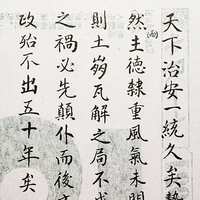 天下治安一統久矣勢
然主德隆重風氣未開
(而)
則土崩瓦解之局不成
之禍必先顛仆而後方
政殆不出五十年矣